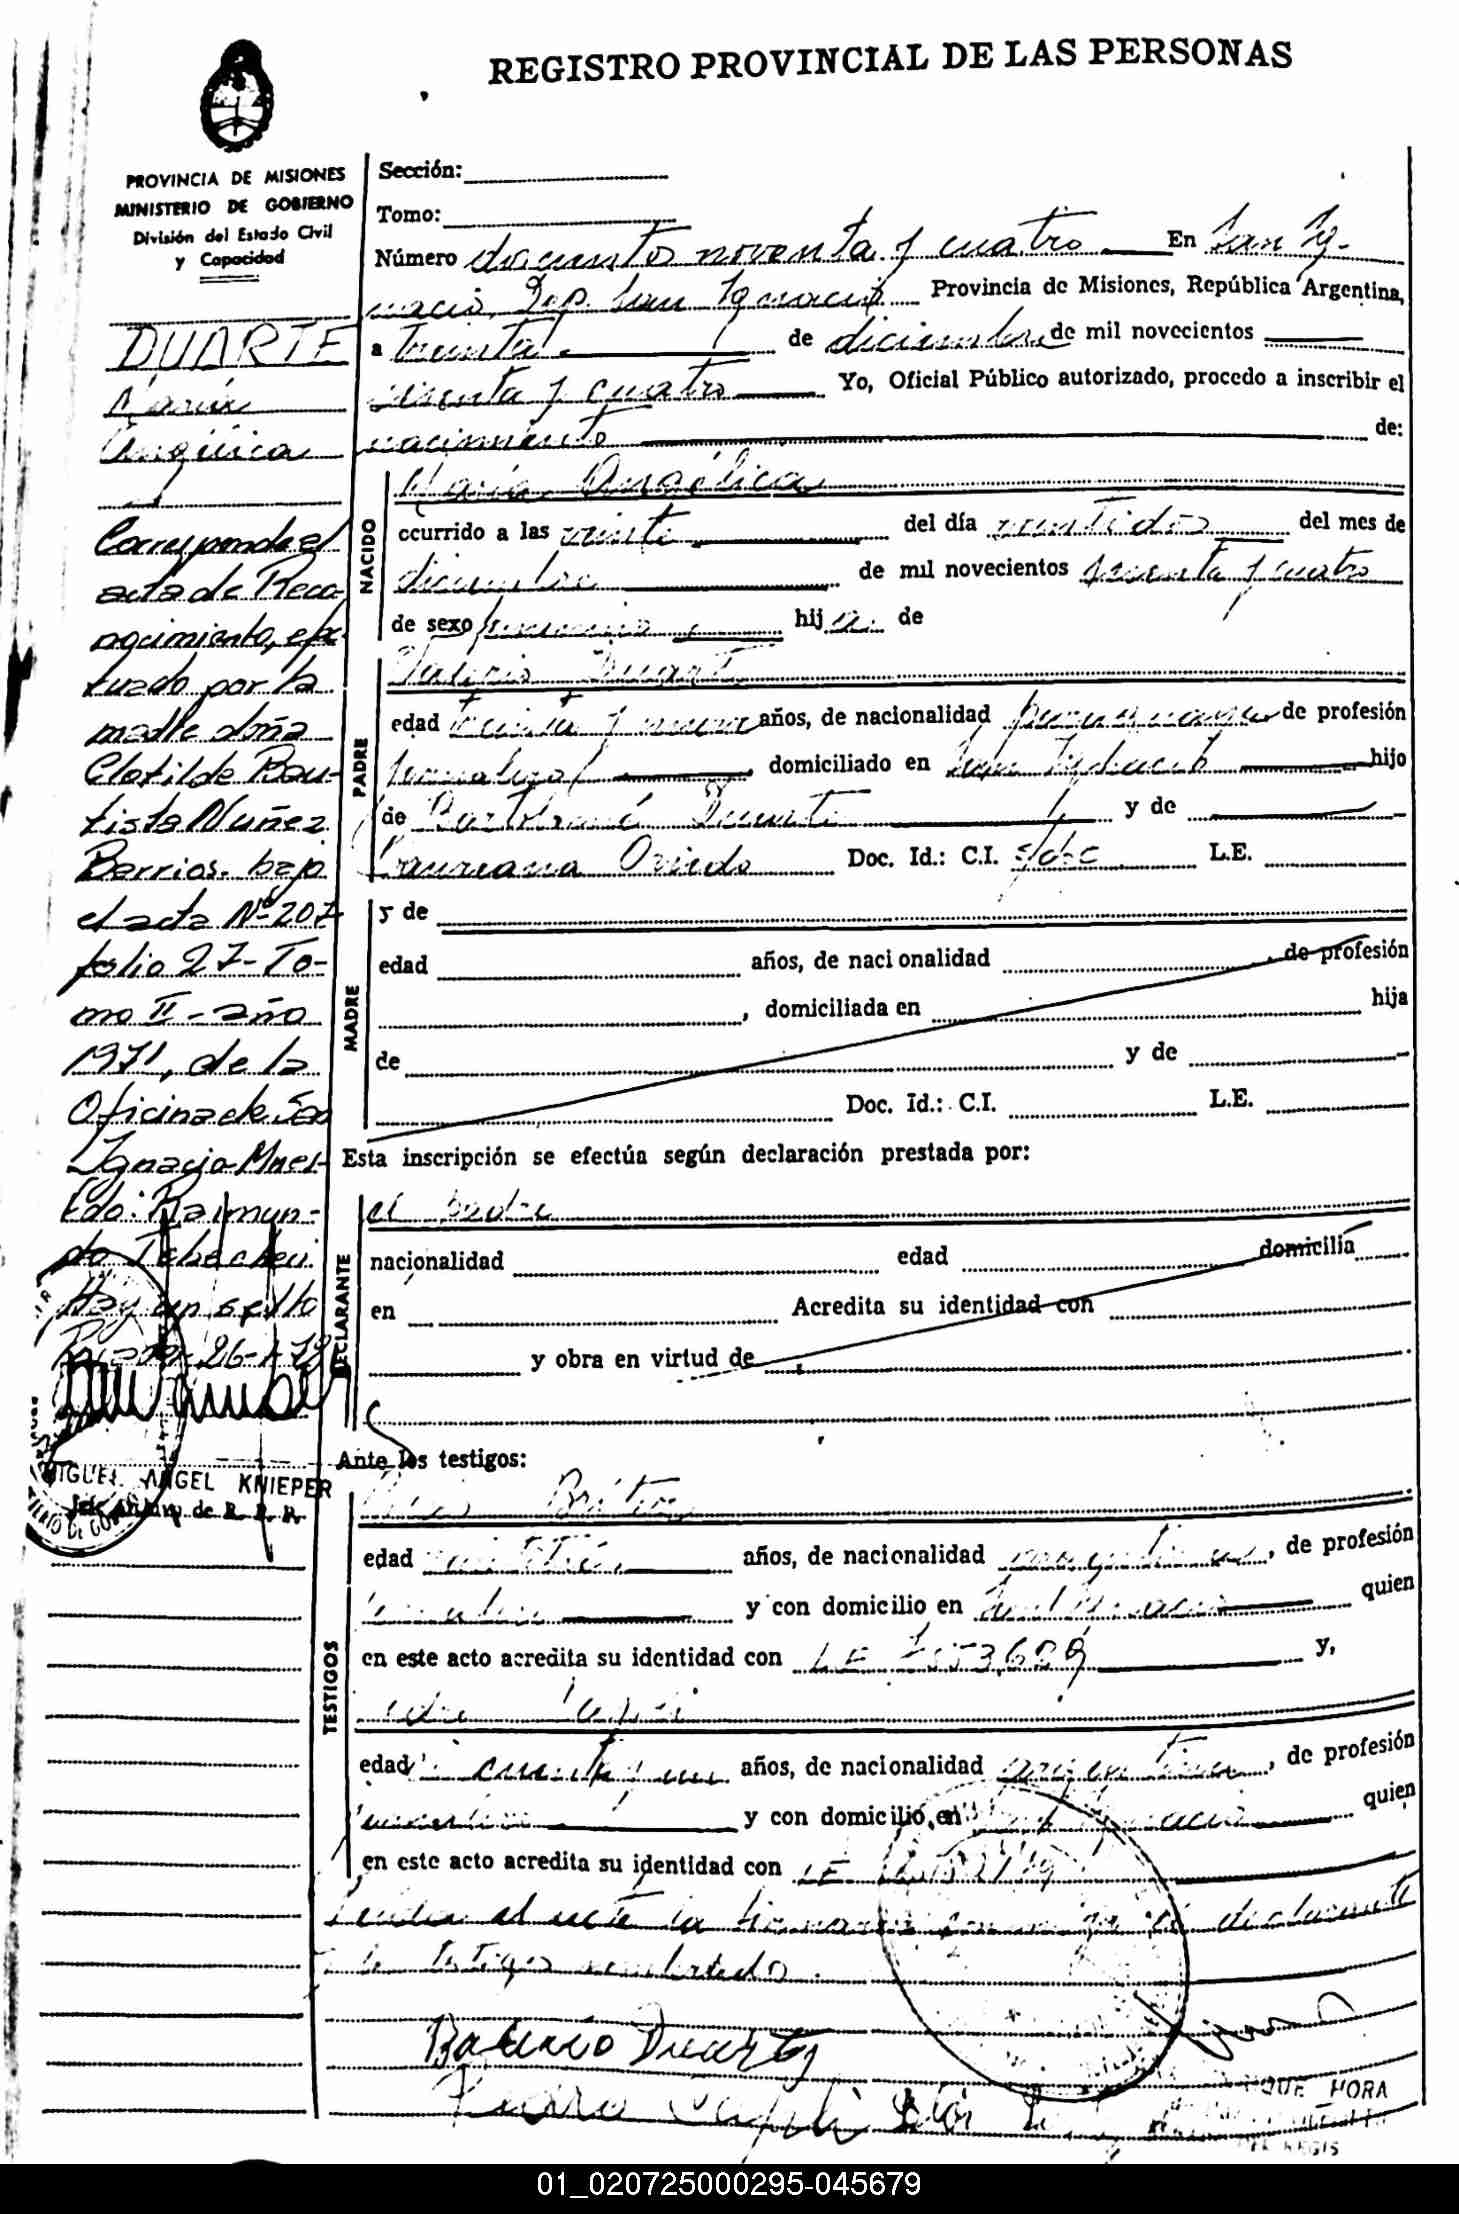 REGISTRO PROVINCIAL DE LAS PERSONAS
PROVINCIA DE MISIONES
MINISTERIO DE GOBIERNO
División del Estado Civil
y Capacidad
DUARTE
María
Angélica
Corresponde el
acta de Reco-
nocimiento, efec-
tuado por la
madre doña
Clotilde Bau-
tista Nuñez
Berrios. bajo
el acta Nº 207
folio 27- To-
mo II - año
1971, de la
Oficina de San
Ignacio Mnes-
Fdo: Raimun-
do
Hay un sello
26-1-72
MIGUEL ANGEL KNIEPER
Jefe Archivo de R. P. P.
Sección:
Tomo:
Número doscientos noventa y cuatro En San Ig-
nacio, Dep. San Ignacio Provincia de Misiones, República Argentina,
a treinta de diciembre de mil novecientos
sesenta y cuatro Yo, Oficial Público autorizado, procedo a inscribir el
nacimiento de:
NACIDO
María Angélica
ocurrido a las veinte del día veintidós del mes de
diciembre de mil novecientos sesenta y cuatro
de sexo femenino hija de
PADRE
Valerio Duarte
edad treinta y nueve años, de nacionalidad paraguaya de profesión
jornalero domiciliado en San Ignacio hijo
de Bartolomé Duarte y de
Laureana Oviedo Doc. Id.: C.I. s/doc L.E.
MADRE
y de
edad años, de nacionalidad de profesión
, domiciliada en hija
de y de
Doc. Id.: C.I. L.E.
Esta inscripción se efectúa según declaración prestada por:
DECLARANTE
el padre
nacionalidad edad domicilia
en Acredita su identidad con
y obra en virtud de
Ante los testigos:
TESTIGOS
Brítez
edad años, de nacionalidad argentina, de profesión
y con domicilio en San Ignacio quien
en este acto acredita su identidad con LE y,
edad cincuenta y un años, de nacionalidad argentina, de profesión
y con domicilio en San Ignacio quien
en este acto acredita su identidad con LE
Leída el acta la firmaron conmigo el declarante
y los testigos nombrados.
Balerio Duarte
Pedro
QUE HORA
DEL REGIS
01_020725000295-045679